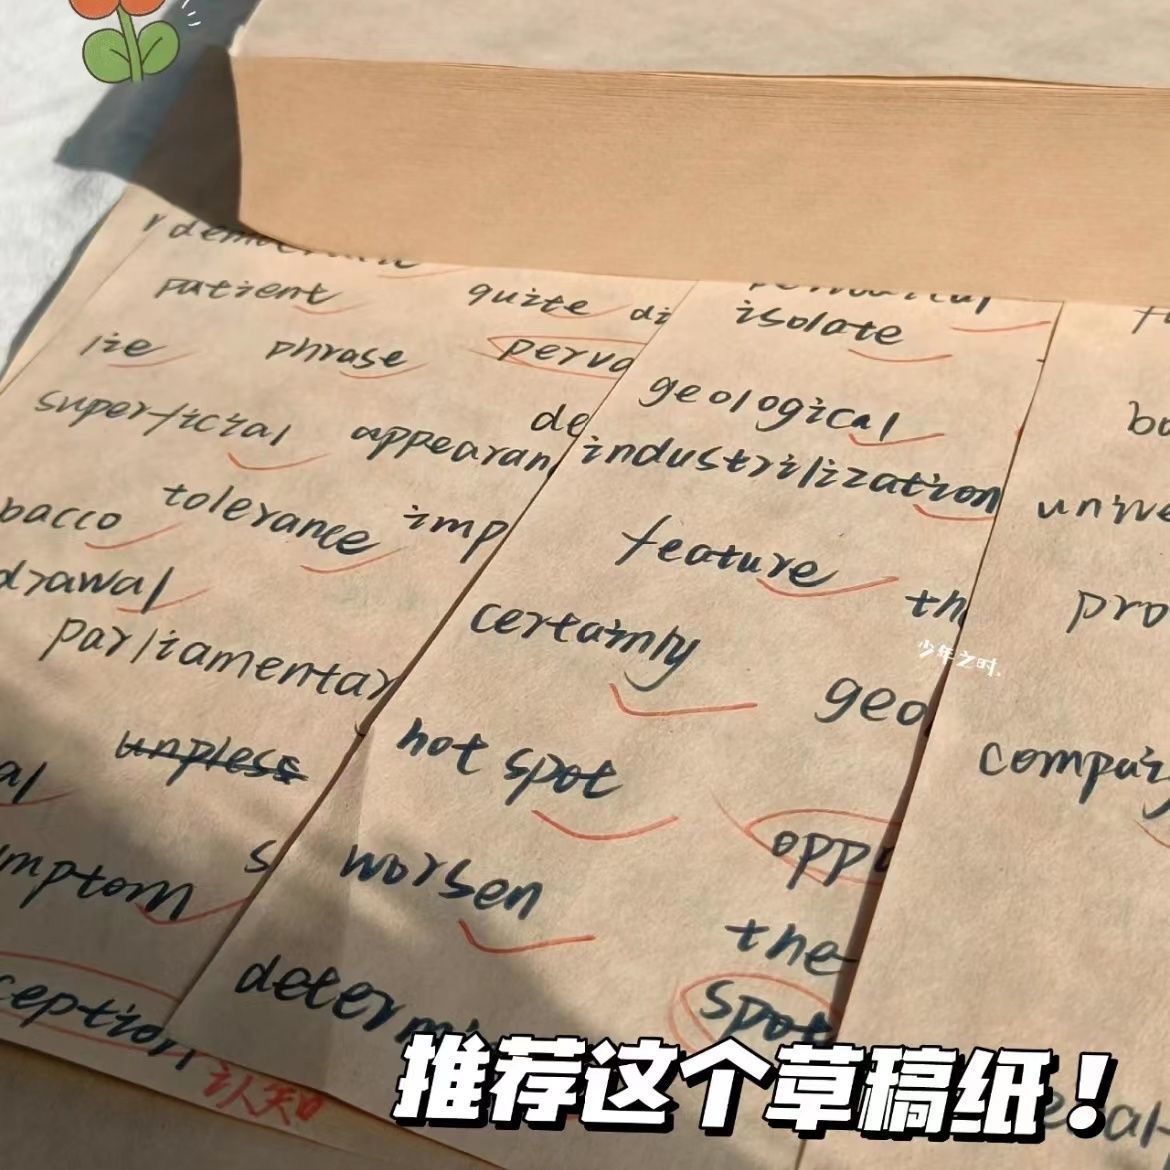 democratic
patient quite di
lie phrase perva
superficial appearan
de
bacco tolerance imp
drawal
parliamentar
al unpless
mptom s
ception
认知
isolate
geological
industrilization
feature
th
certainly
geo
hot spot
oppo
worsen
the
determi
spot
bo
unive
pro
compar
少年之时.
推荐这个草稿纸！